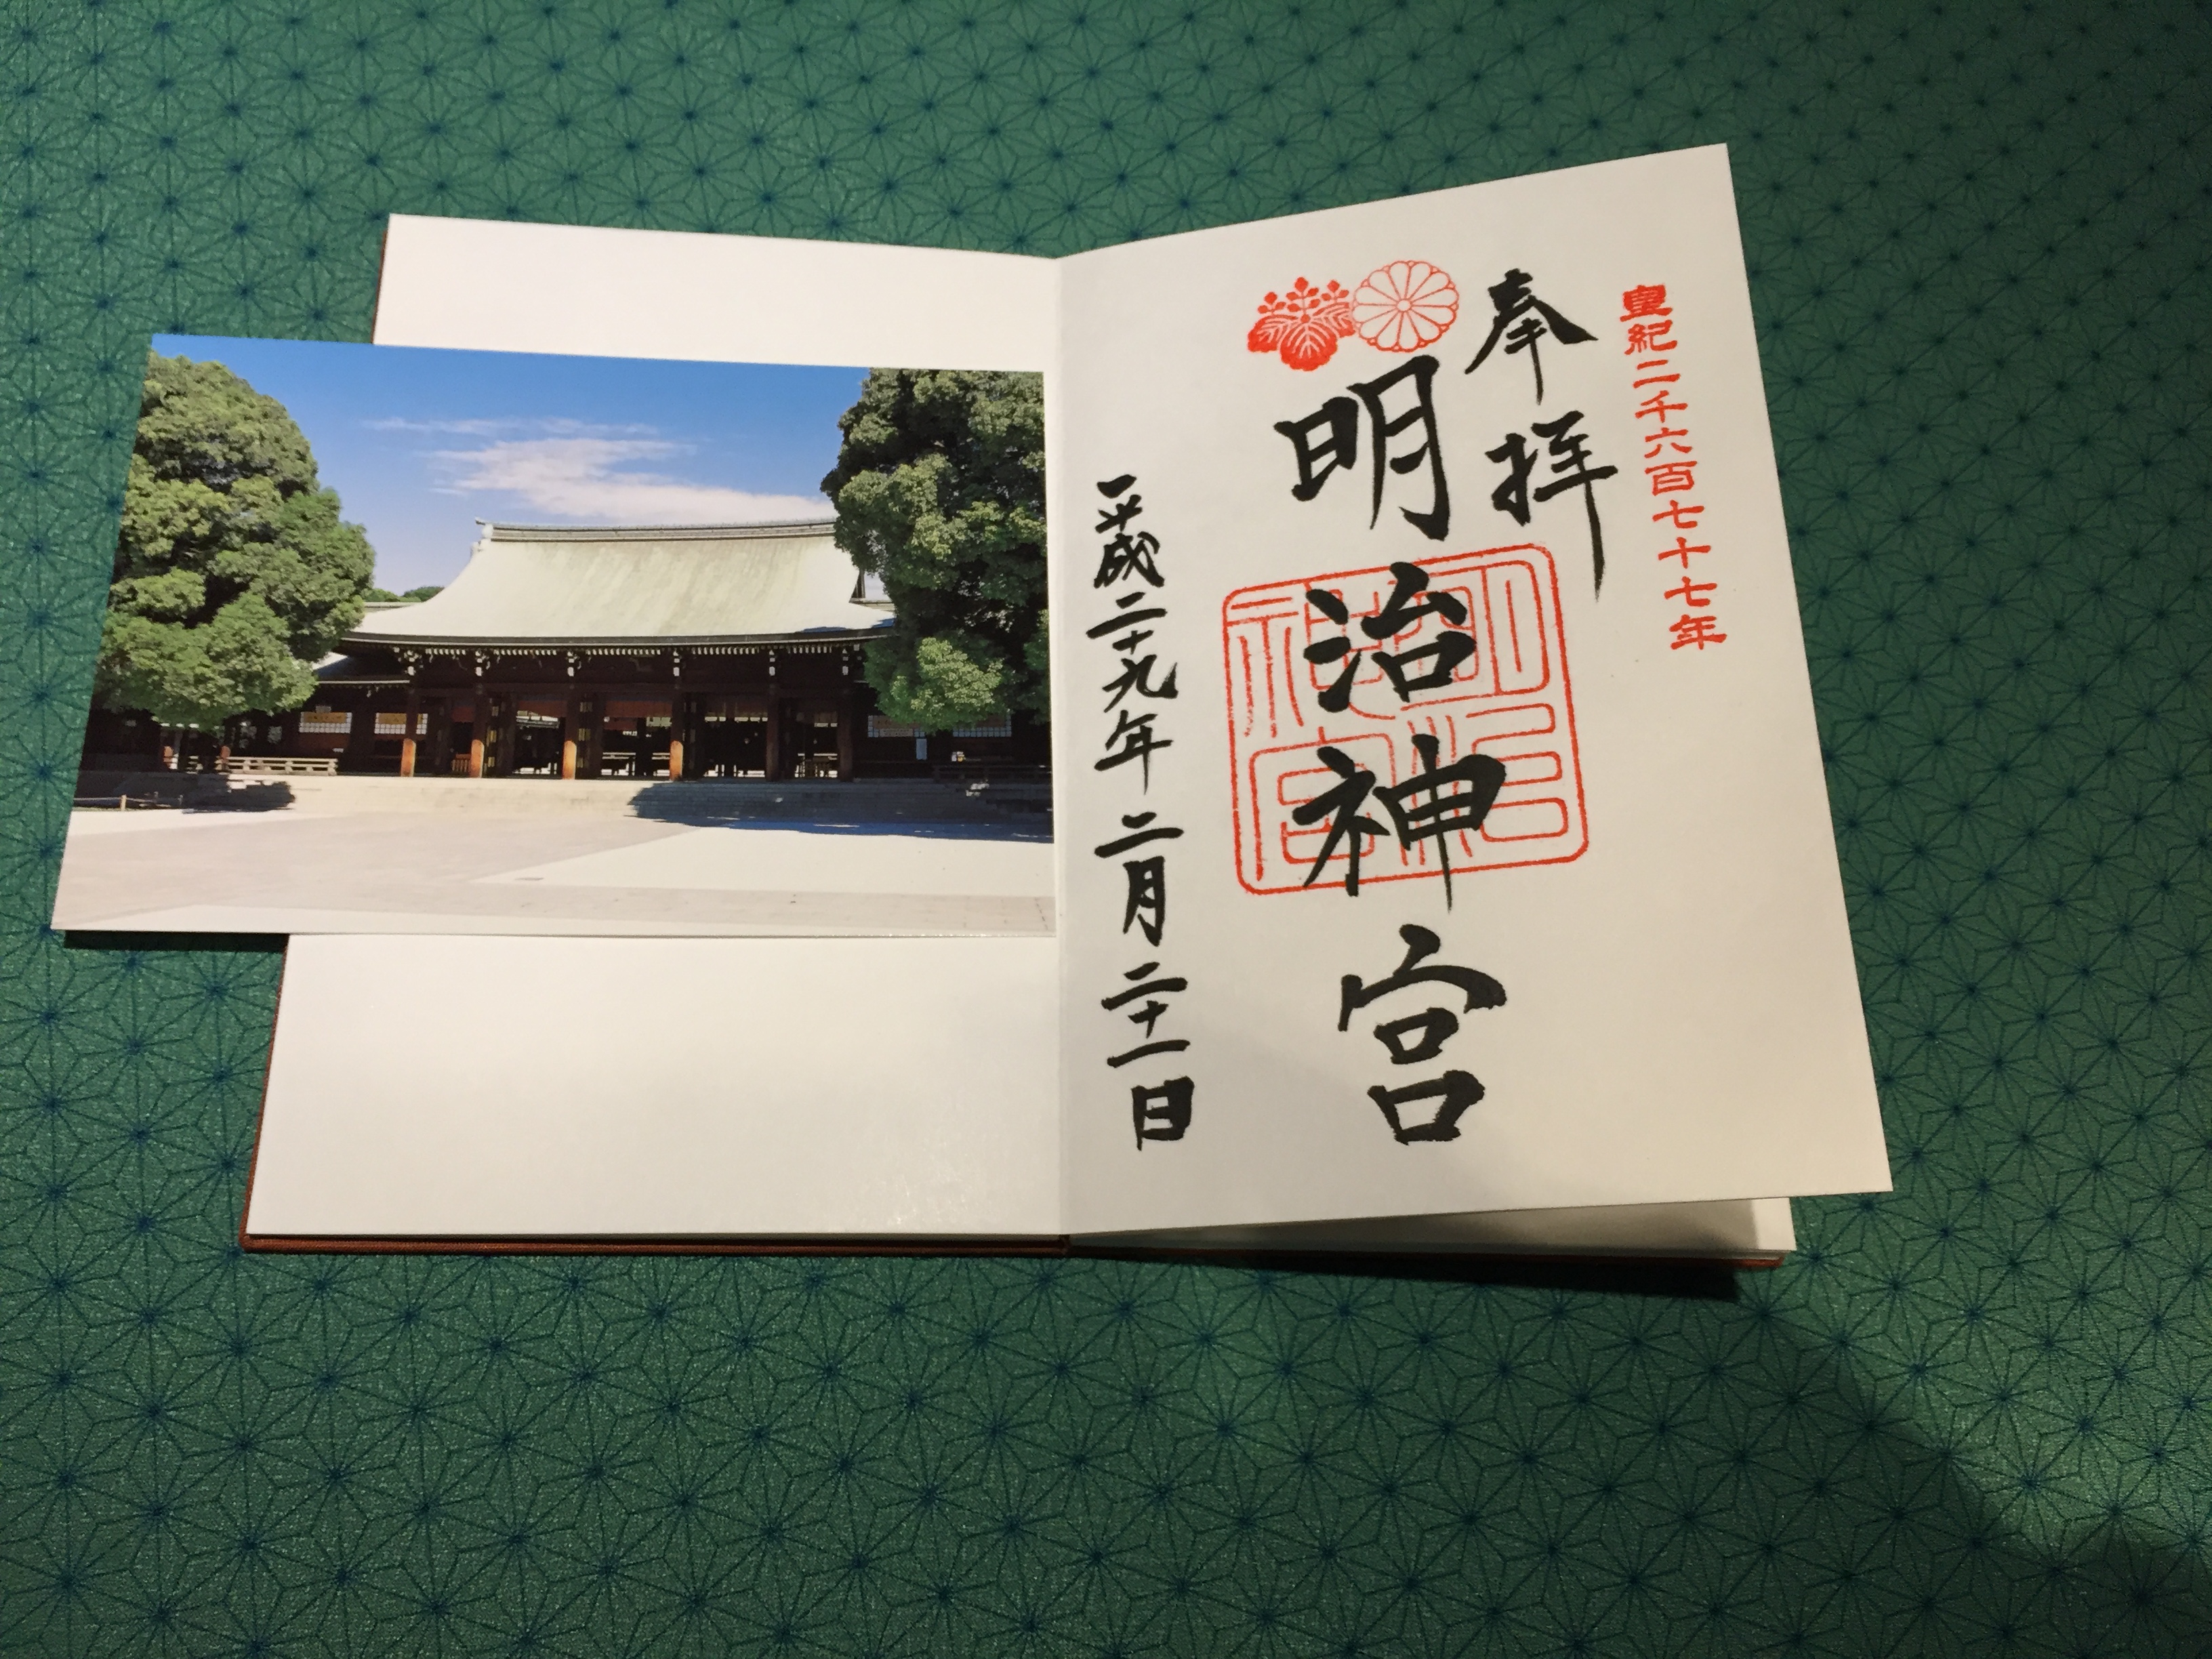 皇紀二千六百七十七年
奉拝
明治神宮
明治神宮
平成二十九年二月二十一日